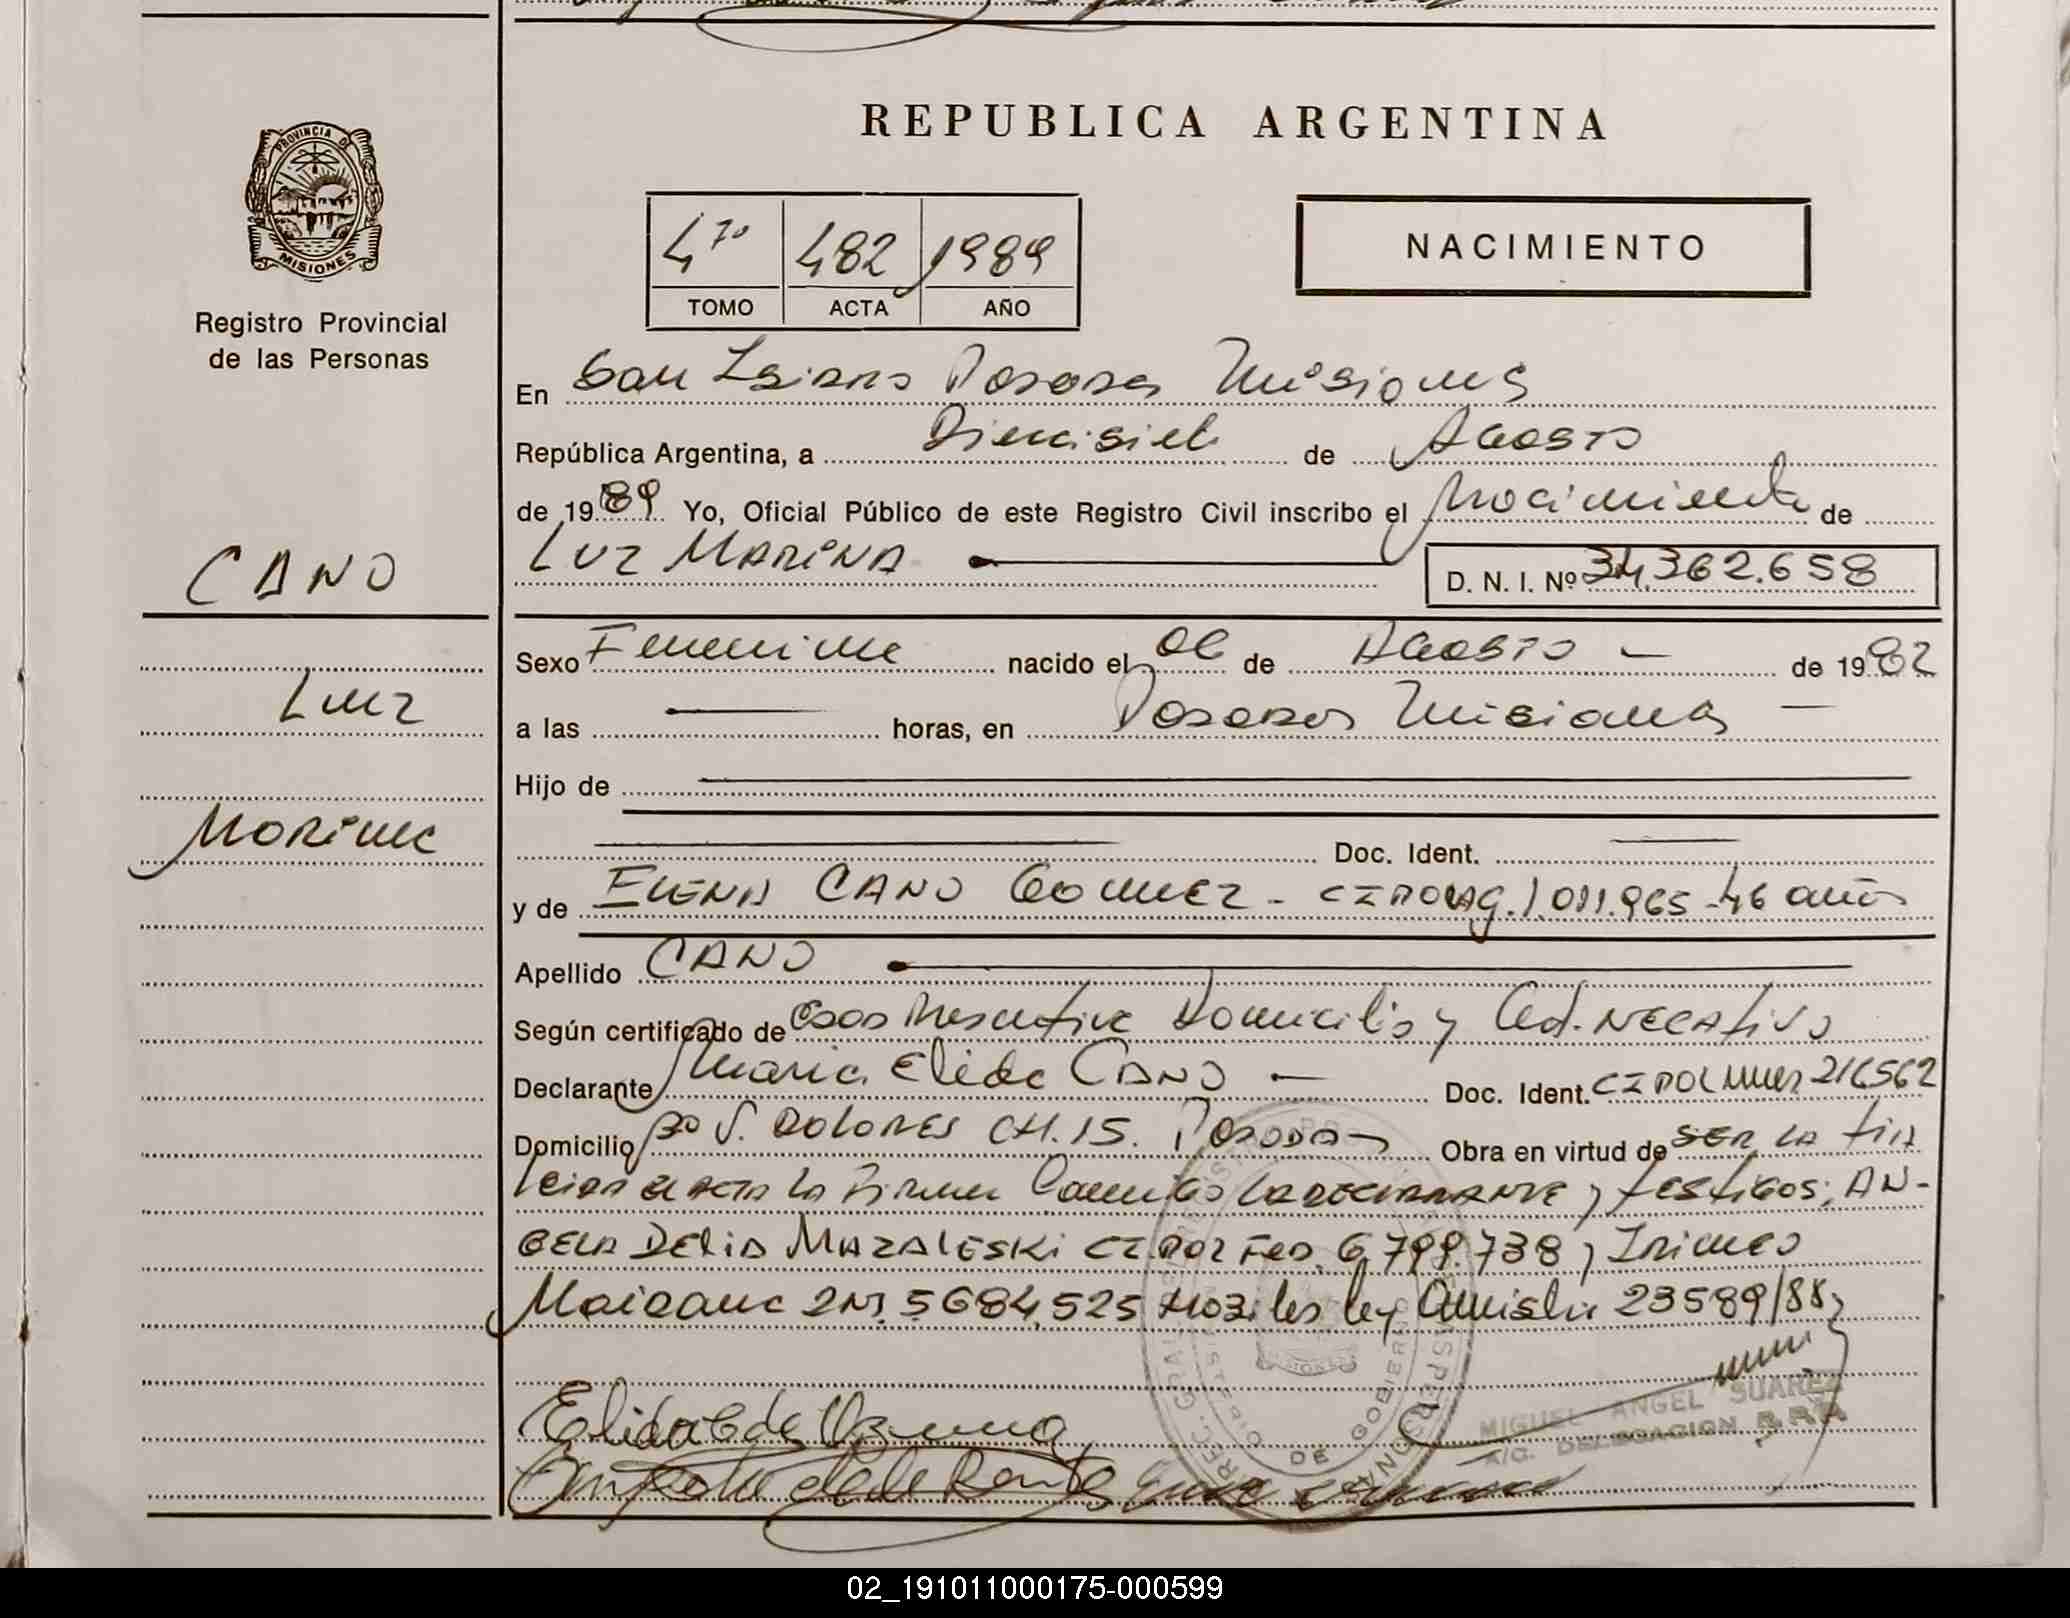 REPUBLICA ARGENTINA
PROVINCIA DE
MISIONES
Registro Provincial
de las Personas
4to 482 1989
TOMO ACTA AÑO
NACIMIENTO
En San Isidro Posadas Misiones
República Argentina, a Diecisiete de Agosto
de 1989 Yo, Oficial Público de este Registro Civil inscribo el Nacimiento de
LUZ MARINA
D. N. I. Nº 34.362.658
CANO
Luz
Marina
Sexo Femenino nacido el 06 de Agosto de 1982
a las horas, en Posadas Misiones
Hijo de
Doc. Ident.
y de ELENA CANO GOMEZ - 1.011.965 - 46 años
Apellido CANO
Según certificado de Domicilio y Cert. NEGATIVO
Declarante Maria Elida CANO Doc. Ident. 216562
Domicilio DOLORES CH. 15. Posadas Obra en virtud de SER LA tia
Leida el acta la firman Conmigo LA DECLARANTE y testigos: AN-
GELA DELIA MAZALESKI CI POL FED. 6.799.738 y
5.684.525 ley Amnistia 23589/88
MIGUEL ANGEL SUAREZ
A/C. DELEGACION
02_191011000175-000599